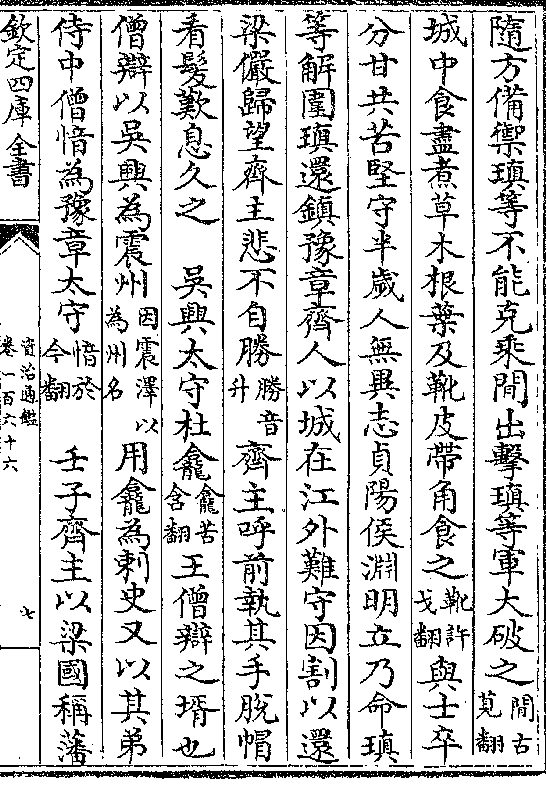 隨方備禦瑱等不能克乘間出擊瑱等軍大破之間古莧翻
城中食盡煮草木根葉及靴皮帶角食之靴許戈翻與士卒
分甘共苦堅守半歲人無異志貞陽侯淵明立乃命瑱
等解圍瑱還鎮豫章齊人以城在江外難守因割以還
梁儼歸望齊主悲不自勝勝音升齊主呼前執其手脫帽
看髮歎息久之　吳興太守杜龕龕苦含翻王僧辯之壻也
僧辯以吳興為震州因震澤以為州名用龕為刺史又以其弟
侍中僧愔為豫章太守愔於今翻　壬子齊主以梁國稱藩
欽定四庫全書
資治通鑑
卷一百六十六
七